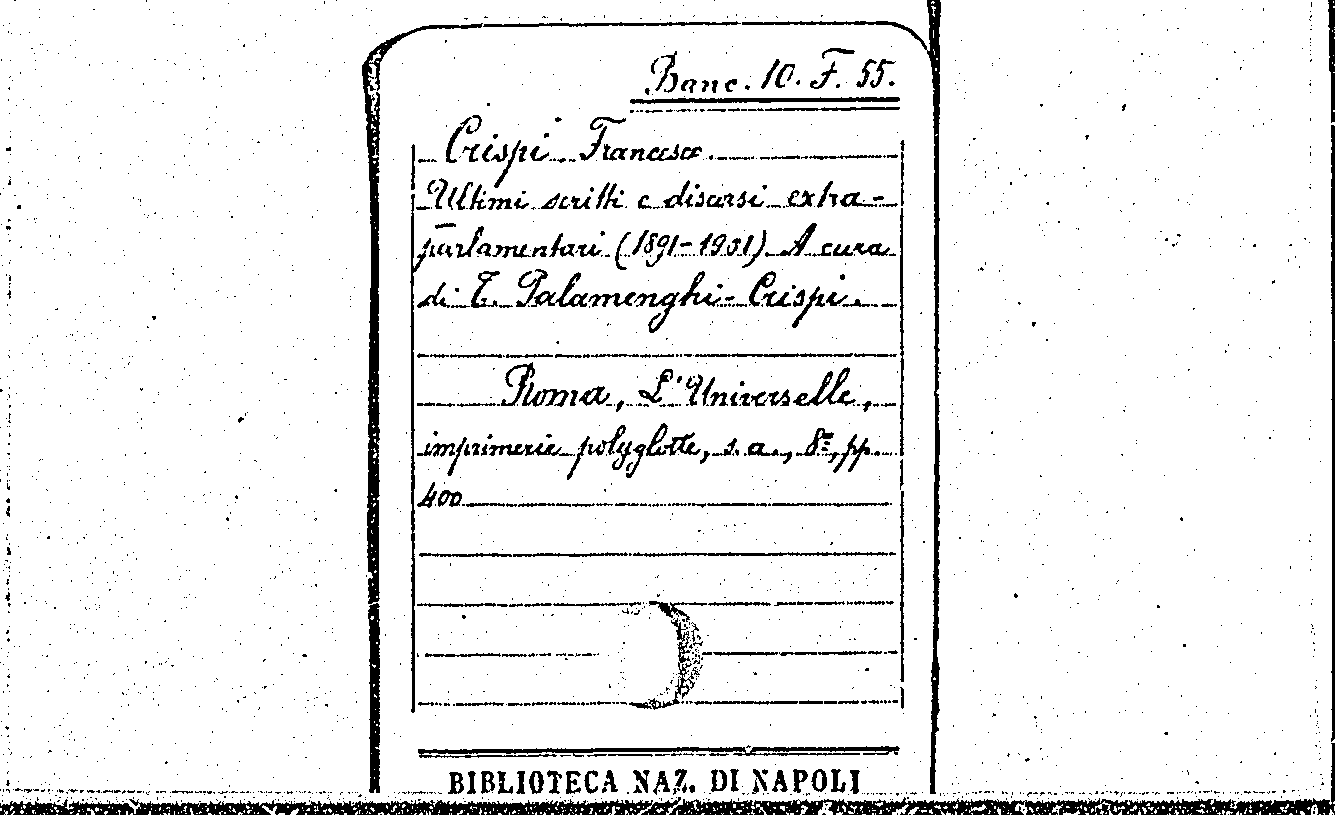 Banc. 10. F. 55.
Crispi Francesco.
Ultimi scritti e discorsi extra-
parlamentari (1891-1901). A cura
di T. Palamenghi-Crispi.
Roma, L'Universelle,
imprimerie polyglotte, s. a., 8º, pp.
400
BIBLIOTECA NAZ. DI NAPOLI